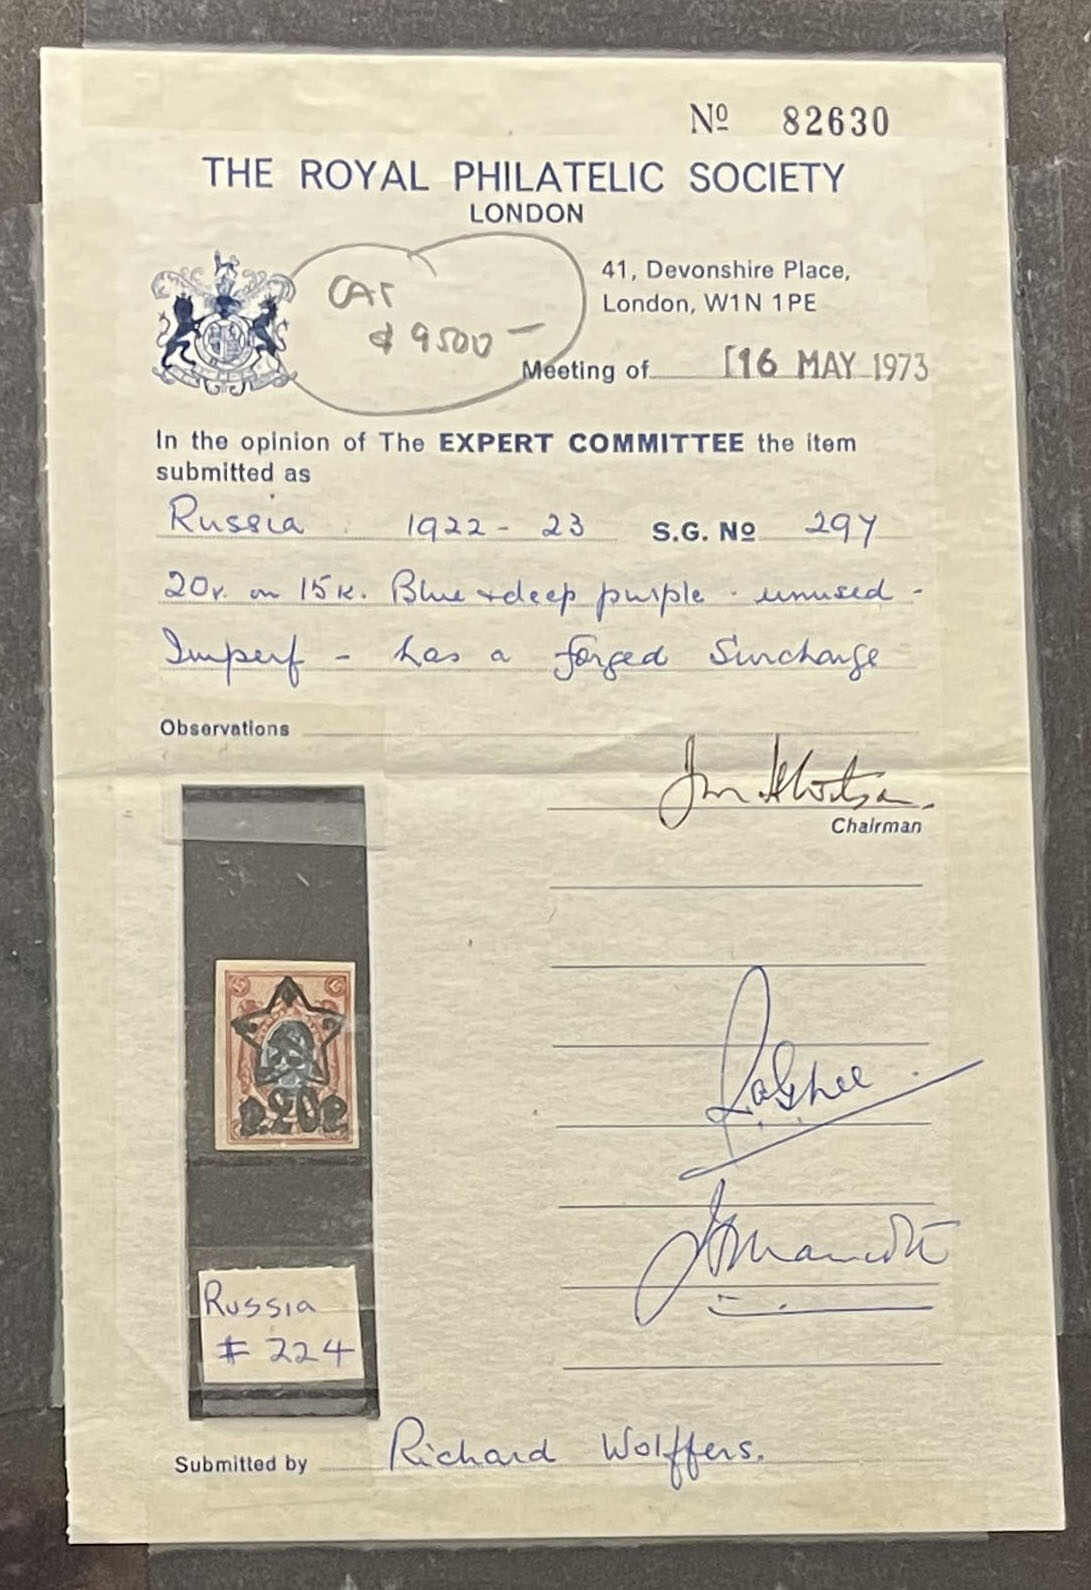 Nº 82630
THE ROYAL PHILATELIC SOCIETY
LONDON
41, Devonshire Place,
London, W1N 1PE
CAT
$ 9500 –
Meeting of 16 MAY 1973
In the opinion of The EXPERT COMMITTEE the item
submitted as
Russia 1922 - 23 S.G. Nº 297
20r. on 15k. Blue + deep purple - unused -
Imperf - has a forged Surcharge
Observations
Chairman
р.20р.
Russia
# 224
Submitted by Richard Wolffers.